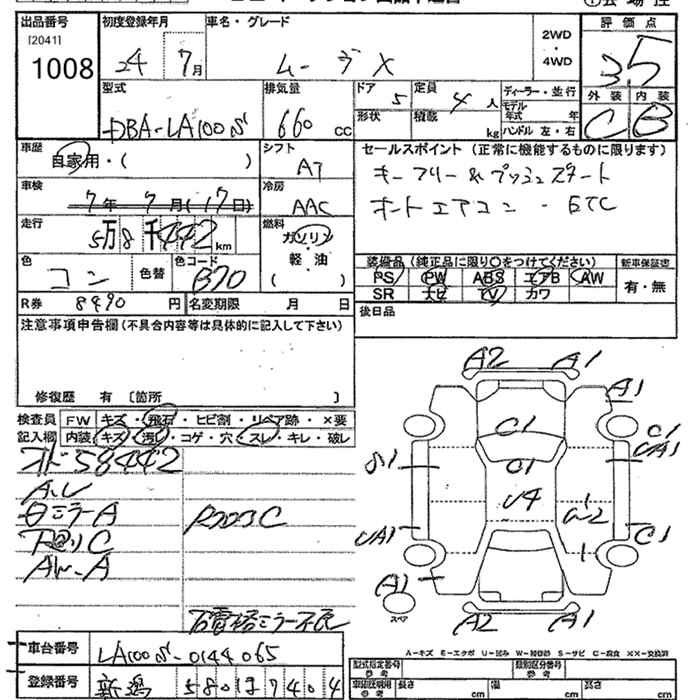 出品番号
[20411]
1008
初度登録年月
24 7月
車名・グレード
ムーヴX
2WD
・
4WD
評価点
3.5
外装 内装
C B
型式
DBA-LA100S
排気量
660 cc
ドア 5
形状
定員 4 人
積載 kg
ディーラー・並行
モデル年式 年
ハンドル 左・右
車歴
自家用・( )
シフト
AT
車検
7年7月(17日)
冷房
AAC
走行
5万8千442km
燃料
ガソリン
・
軽・油
( )
色
コン
色替
色コード
B70
R券 8490 円
名変期限 月 日
セールスポイント(正常に機能するものに限ります)
キーフリー&プッシュスタート
オートエアコン・ETC
装備品(純正品に限り○をつけてください)
PS PW ABS エアB AW
SR ナビ TV カワ
新車保証書
有・無
後日品
注意事項申告欄(不具合内容等は具体的に記入して下さい)
修復歴 有 〔箇所 〕
検査員
記入欄
FW キズ・飛石・ヒビ割・リペア跡・×要
内装 キズ・汚レ・コゲ・穴・スレ・キレ・破レ
オド58442
ミラーA
ミラー不良
A2 A1
A1
C1
C1
UA1
S1
U4
UA1
C1
A1
スペア
A2 A1
A-キズ E-エクボ U-凹み W-補修跡 S-サビ C-腐食 XX-交換済
車台番号
LA100S-0144065
登録番号
新潟 580 7404
型式指定番号
参考
類別区分番号
参考
長さ cm
高さ cm